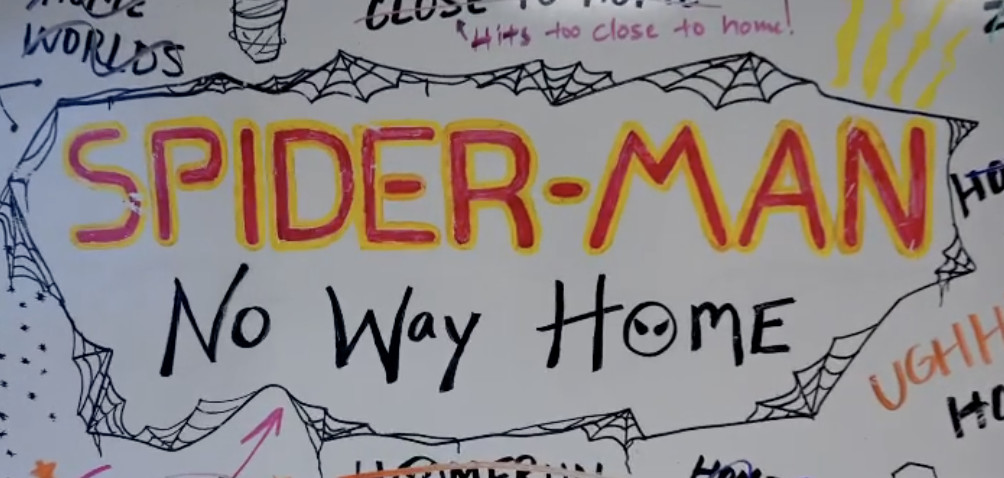 WORLDS
CLOSE TO HOME
Hits too close to home!
SPIDER-MAN
No Way HOME
UGHH
HOMERUN